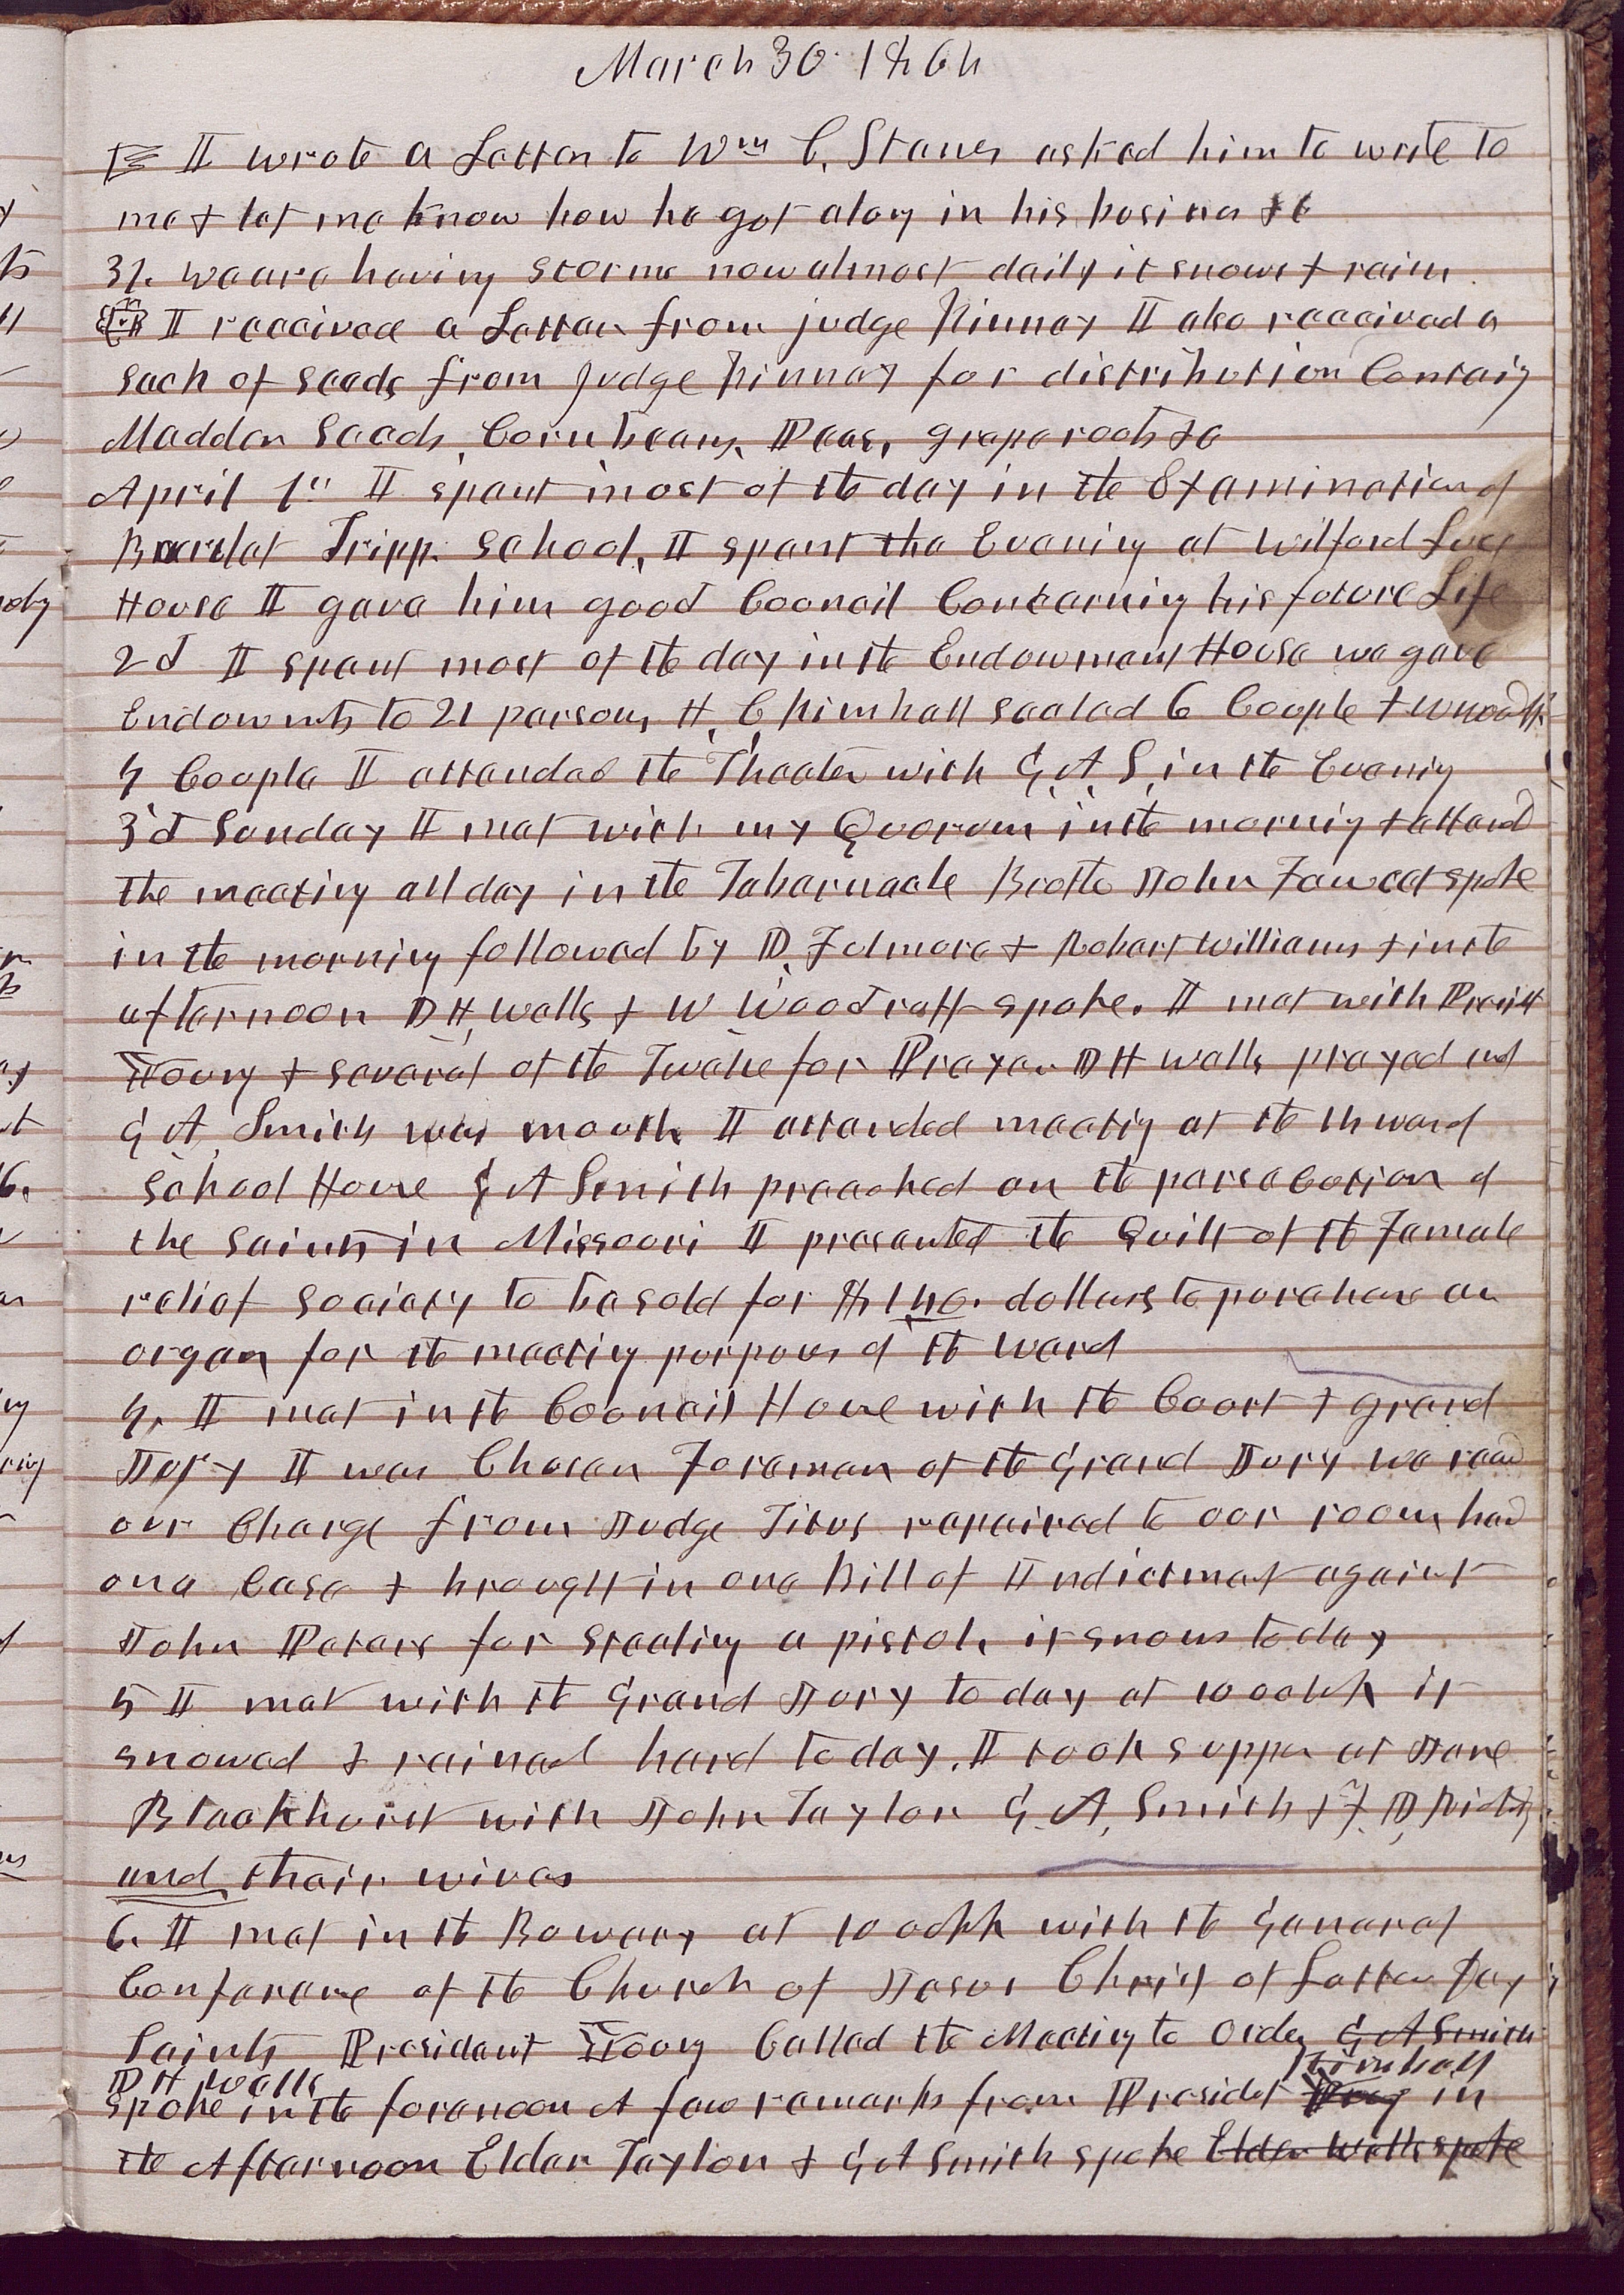 March 30 1864
I wrote a Letter to Wm C. Staines asked him to write to
me & let me know how he got along in his busines &c
31. we are having storms now almost daily it snows & rains
I received a Letter from judge Kinney I also received a
sack of seeds from judge Kinney for distribution Containg
Madder Seeds, Corn beans, Peas, grape roots &c
April 1st I spent most of the day in the Examination of
Bartlet Tripp School, I spent the Evening at Wilford
House I gave him good Council Concerning his future Life
2d I spent most of the day in the Endowment House we gave
Endowmts to 21 persons, H. C Kimball sealed 6 Couple & W Woodruff
4 Couple I attended the Theater with G, A, S, in the Evening
3d Sunday I met with my Quorum in the morning & attend
the meeting all day in the Tabernacle Brother John Fawcet spoke
in the morning followed by D. Fulmore & Robert Williams & in the
afternoon D H, Wells & W Woodruff spoke. I met with Presidt
Young & several of the Twelve for Prayer D H Wells prayed and
G A, Smith was mouth I attended meeting at the 14 ward
School House G A Smith preached on the persecution of
the Saints in Missouri I presented the Quilt of the Female
relief society to be sold for $140. dollars to purchase an
organ for the meeting purposes of the ward
4, I met in the Council House with the Court & grand
Jury I was Chosen Foreman of the Grand Jury we recd
our Charge from Judge Titus repaired to our room had
one Case & brought in one Bill of Indictment against
John Peters for stealing a pistol, it snows to day
5 I met with the Grand Jury to day at 10 oclok it
snowed & rained hard to day. I took supper at Jane
Blackhurst with John Taylor G. A, Smith & F. D, Richards
and thair wives
6. I met in the Bowery at 10 oclk with the General
Conference of the Church of Jesus Christ of Latter Day
Saints President Young Called the Meeting to Order G A Smith
D H Wells Kimball
spoke in the forenoon A few remarks from Presidet in
the Afternoon Elder Taylor & G A Smith spoke Elder Wells spoke